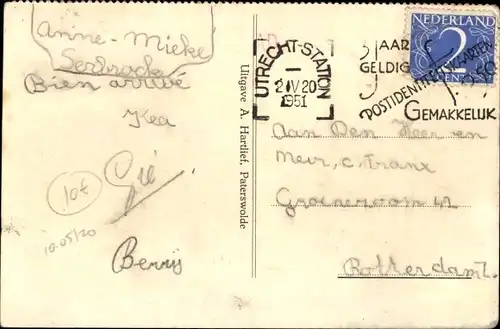 Anne-Mieke
Serbrock
Bien arrivé
Kea
Gré
10t
10.05/20
Berrij
Uitgave A. Hartlief, Paterswolde
UTRECHT-STATION
2 IV 20
1951
JAAR
GELDIG
POSTIDENTITEITSKAARTEN
GEMAKKELIJK
NEDERLAND
2
CENT
Aan Den Heer en
Mevr. C. Franx
42
Rotterdam